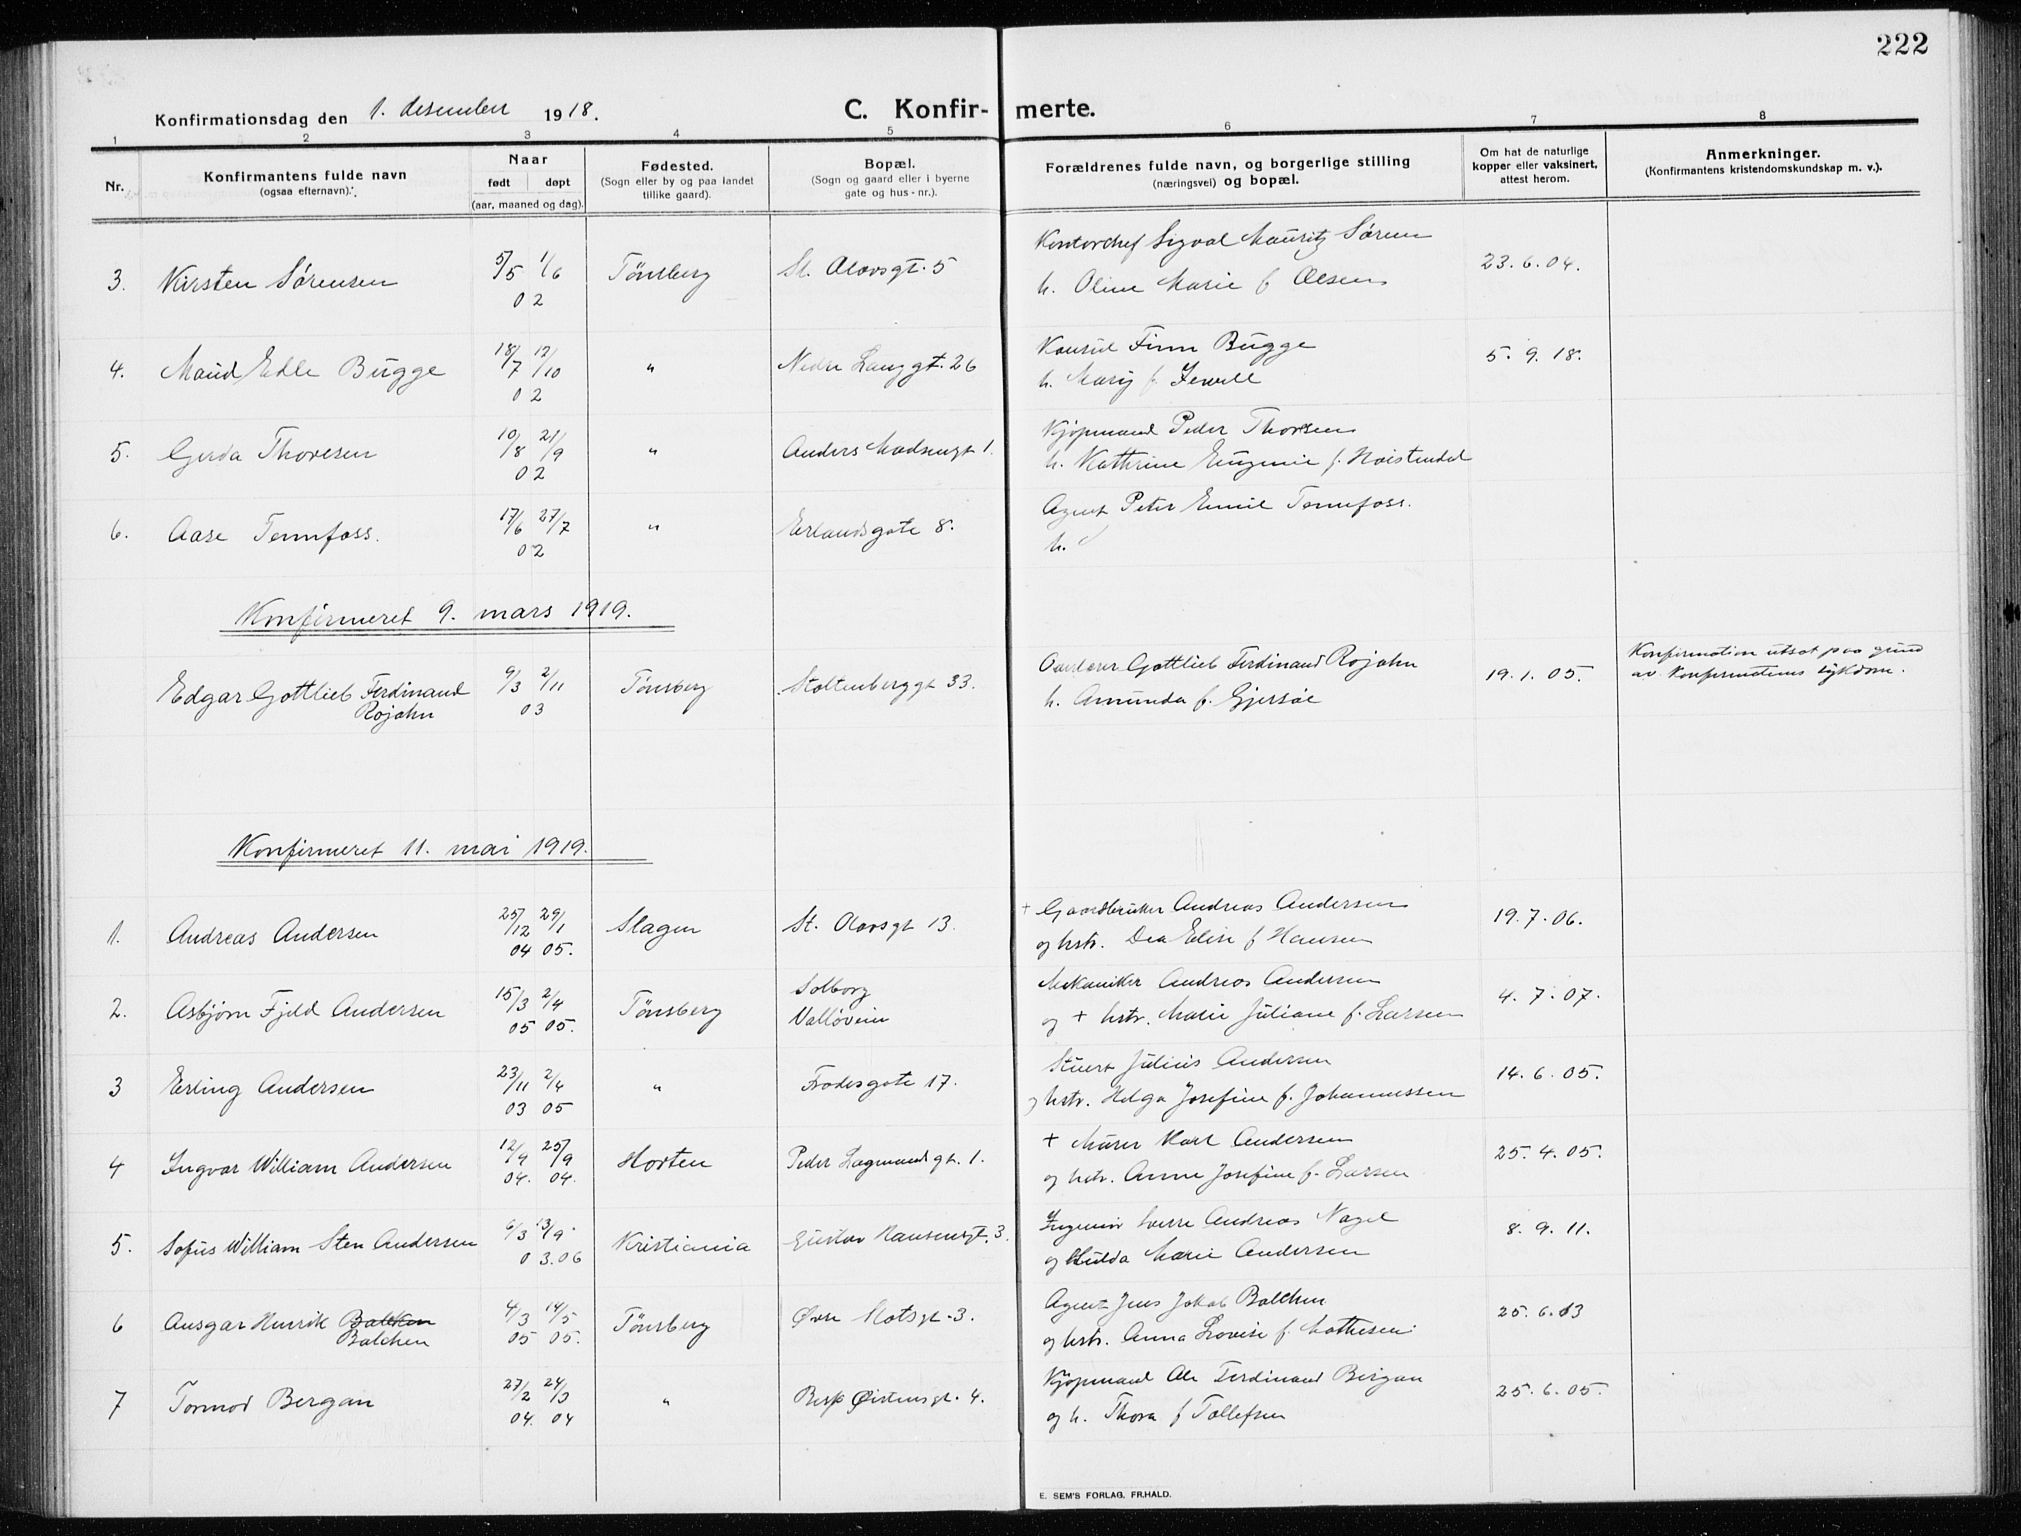 222
Konfirmationsdag den 1. desember 1918.
C. Konfir- merte.
1 2 3 4 5 6 7 8
Nr.
Konfirmantens fulde navn
(ogsaa efternavn).
Naar
født døpt
(aar, maaned og dag).
Fødested.
(Sogn eller by og paa landet
tillike gaard).
Bopæl.
(Sogn og gaard eller i byerne
gate og hus-nr.).
Forældrenes fulde navn, og borgerlige stilling
(næringsvei) og bopæl.
Om hat de naturlige
kopper eller vaksinert,
attest herom.
Anmerkninger.
(Konfirmantens kristendomskundskap m. v.).
3. Kirsten Sørensen 5/5 1/6 Tønsberg St. Olavsgt. 5 Kontorchef Sigval Mauritz Sørensen 23.6.04.
02 h. Oline Marie f Olsen
4. Maud Edle Bugge 18/7 12/10 " Nedre Langgt. 26 Konsul Finn Bugge 5.9.18.
02 h. Mary f. Jewell
5. Gerda Thoresen 10/8 21/9 " Anders Madsensgt 1. Kjøpmand Peder Thoresen
02 h. Kathrine Eugenie f.
6. Aase Tennfoss. 17/6 27/7 " Erlandsgate 8. Agent Peter Emil Tennfoss.
02 h.
Konfirmeret 9. mars 1919.
Edgar Gottlieb Ferdinand 9/3 2/11 Tønsberg Stoltenberggt 33. Overlærer Gottlieb Ferdinand Rojahn 19.1.05. Konfirmation utsat paa grund
Rojahn 03 h. Amunda f. Gjersøe av konfirmantens sykdom.
Konfirmeret 11. mai 1919.
1. Andreas Andersen 25/12 29/1 Slagen St. Olavsgt 13. + Gaardbruker Andreas Andersen 19.7.06.
04 05. og hstr. Dea Elise f Hansen
2. Asbjørn Fjeld Andersen 15/3 2/4 Tønsberg Solborg Mekaniker Andreas Andersen 4.7.07.
05 05. Valløveien og + hstr. Marie Juliane f. Larsen
3 Erling Andersen 23/11 2/4 " Frodesgate 17. Stuert Julius Andersen 14.6.05.
03 05 og hstr. Helga Josefine f. Johannessen
4 Ingvar William Andersen 12/4 25/9 Horten Peder Lagmandgt. 1. + Murer Karl Andersen 25.4.05.
04. 04. og hstr. Anne Josefine f. Larsen
5. Sofus William Sten Andersen 6/3 13/9 Kristiania Gustav Hansensgt. 3. Ingeniør Sverre Andreas Nagel 8.9.11.
03.06 og Hulda Marie Andersen
6 Ansgar Henrik Balchen 4/3 14/5 Tønsberg Øvre Slotsgt. 3. Agent Jens Jakob Balchen 25.6.13
Balchen 05 05. og hstr. Anna Lovise f. Mathiesen
7 Tormod Bergan 27/2 24/3 " Bisp Øistensgt. 4. Kjøpmand Ole Ferdinand Bergan 25.6.05.
04. 04 og h. Thora f Tollefsen
E. SEM'S FORLAG, FR.HALD.